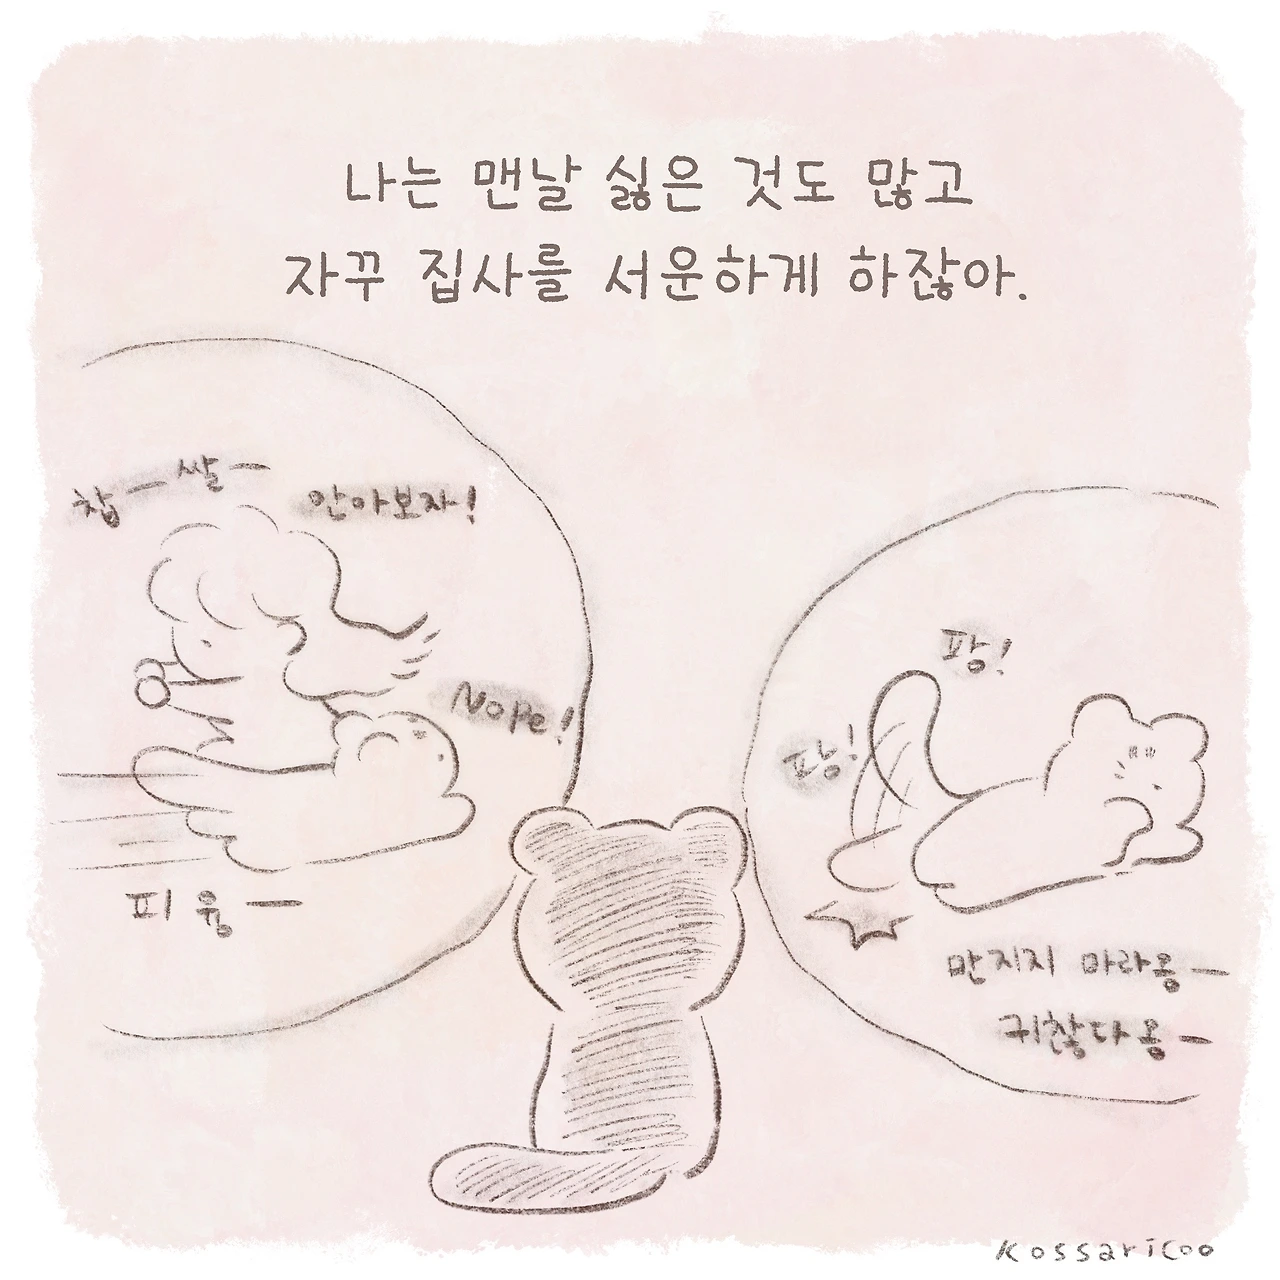 나는 맨날 싫은 것도 많고
자꾸 집사를 서운하게 하잖아.
찹ー쌀ー
안아보자!
Nope!
피융ー
팡!
팡!
만지지 마라옹ー
귀찮다옹ー
Kossaricoo